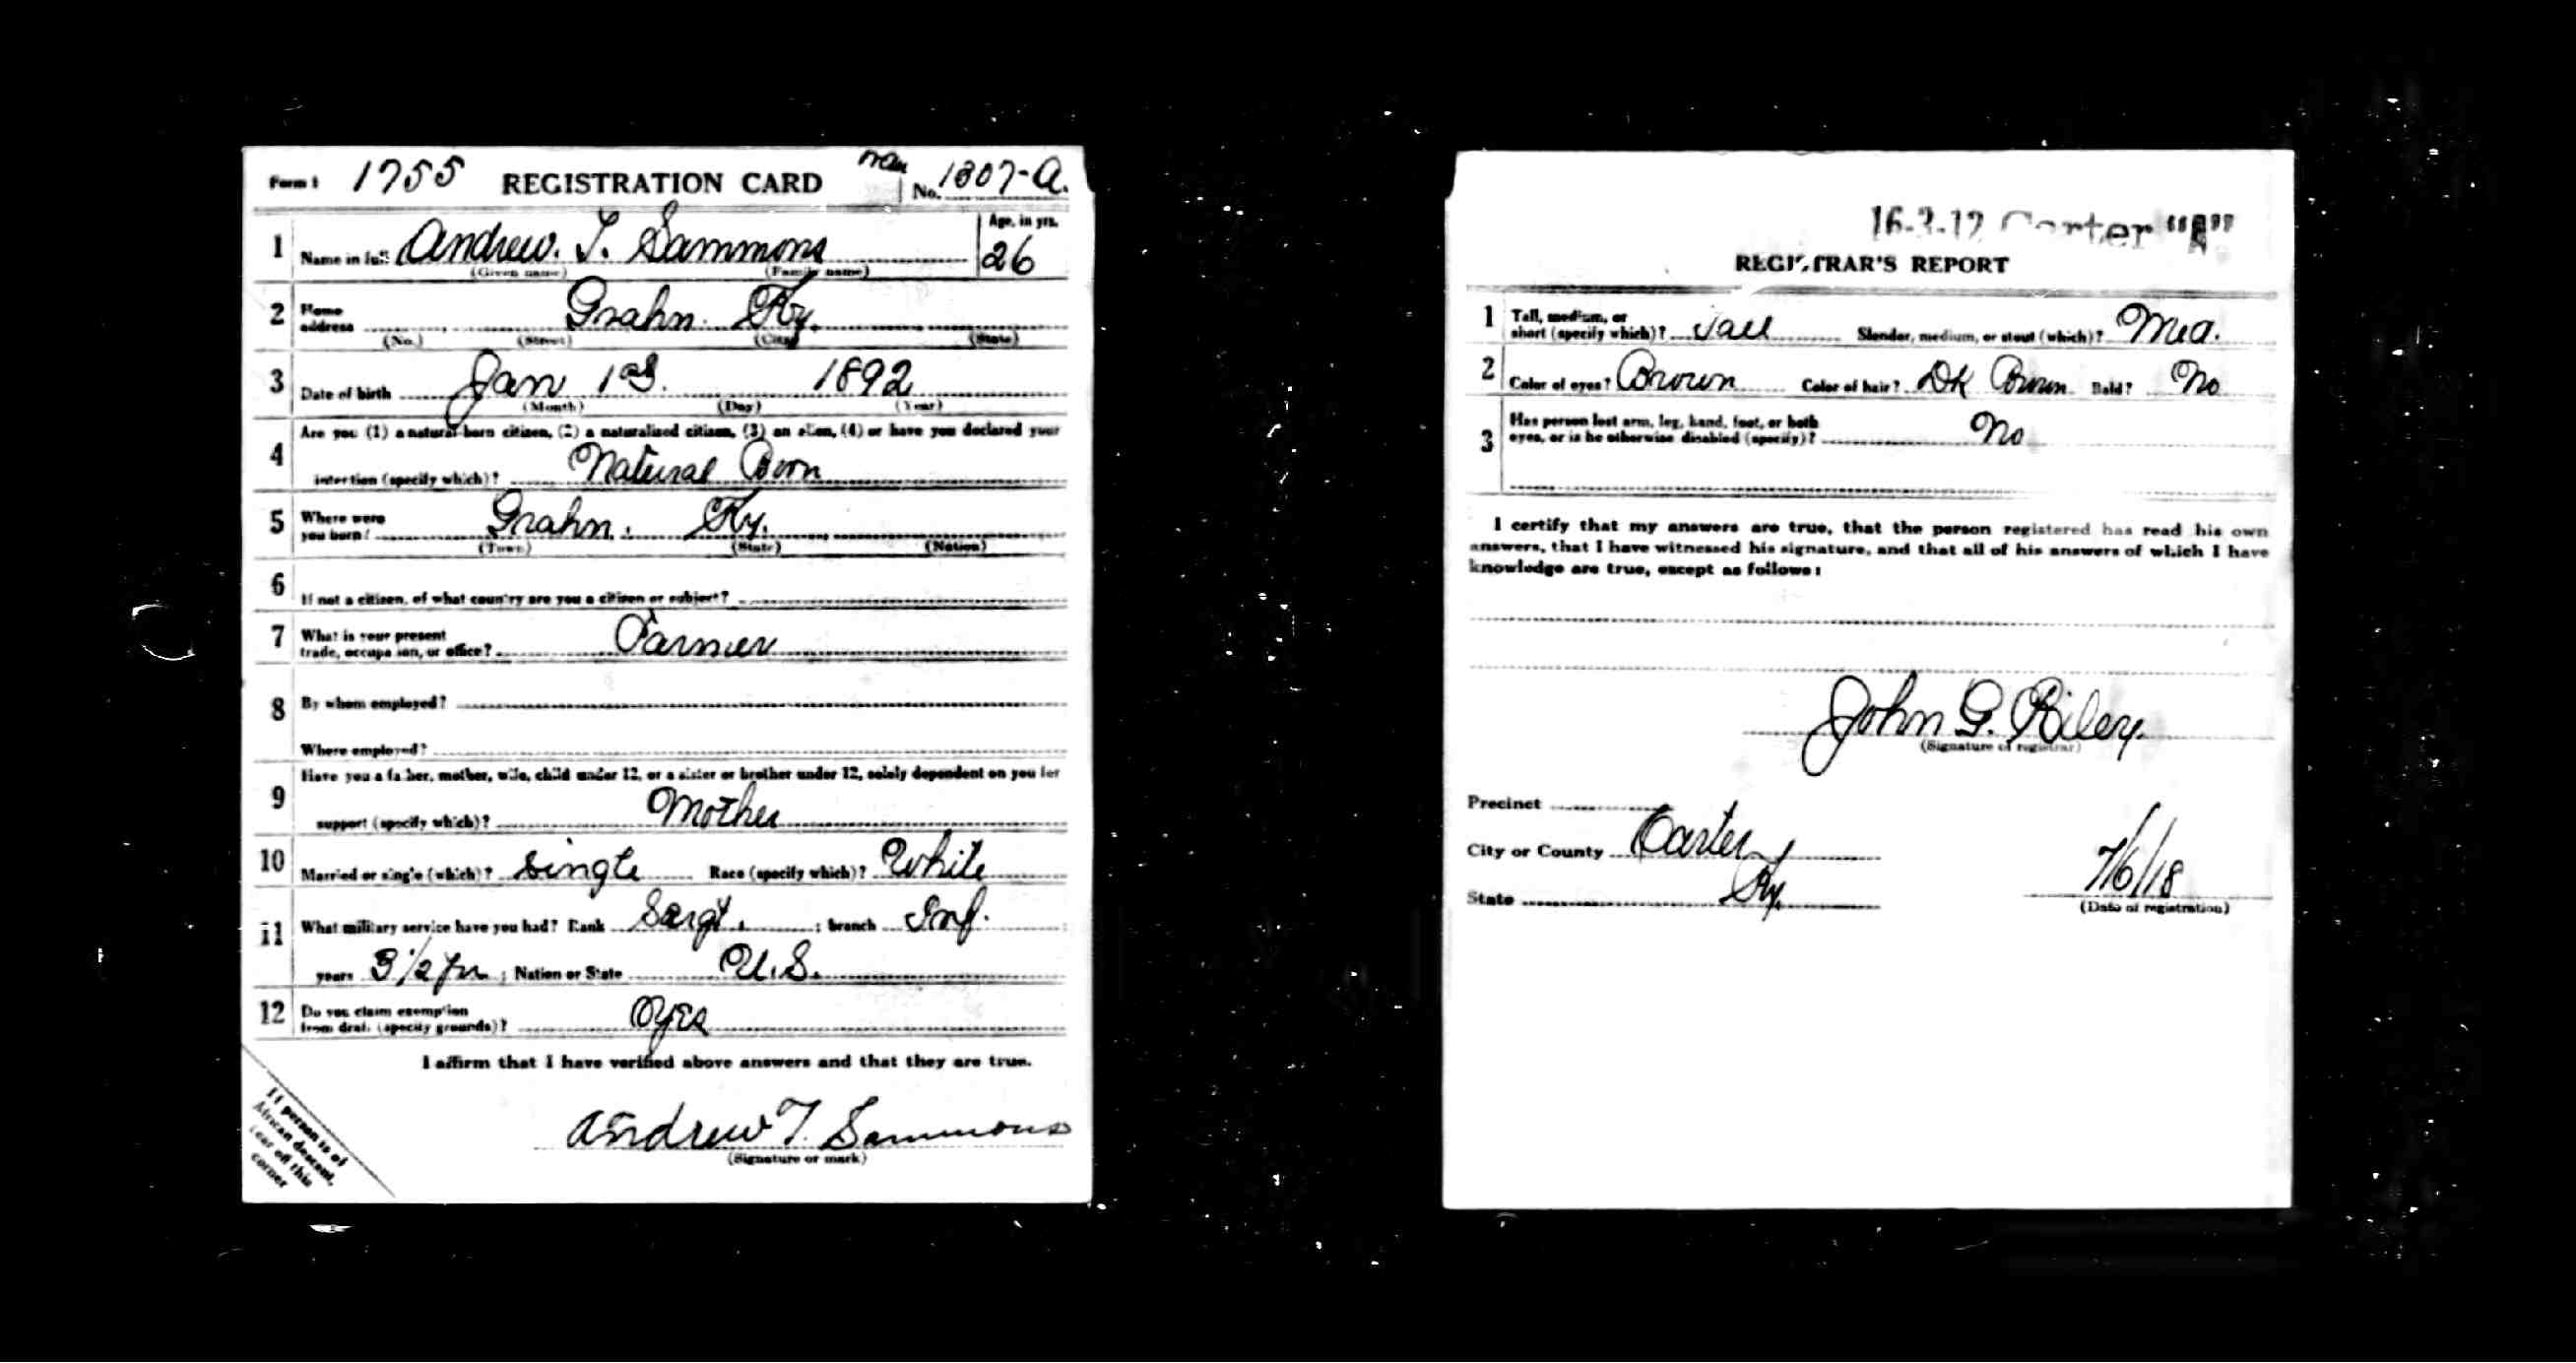 Form 1 1755 REGISTRATION CARD No. 1307-A.
1 Name in full Andrew. T. Sammons Age, in yrs. 26
(Given name) (Family name)
2 Home address Grahn Ky.
(No.) (Street) (City) (State)
3 Date of birth Jan 1st. 1892
(Month) (Day) (Year)
4 Are you (1) a natural-born citizen, (2) a naturalized citizen, (3) an alien, (4) or have you declared your
intention (specify which)? Natural Born
5 Where were you born? Grahn. Ky.
(Town) (State) (Nation)
6 If not a citizen, of what country are you a citizen or subject?
7 What is your present
trade, occupation, or office? Farmer
8 By whom employed?
Where employed?
9 Have you a father, mother, wife, child under 12, or a sister or brother under 12, solely dependent on you for
support (specify which)? Mother
10 Married or single (which)? Single Race (specify which)? White
11 What military service have you had? Rank Sergt. ; branch Inf.
years 3 1/2 yrs ; Nation or State U.S.
12 Do you claim exemption
from draft (specify grounds)? Yes
I affirm that I have verified above answers and that they are true.
Andrew T. Sammons
(Signature or mark)
If person is of
African descent,
tear off this
corner
16-3-12 Carter "A"
REGISTRAR'S REPORT
1 Tall, medium, or
short (specify which)? Tall Slender, medium, or stout (which)? Med.
2 Color of eyes? Brown Color of hair? Dk Brown Bald? No
3 Has person lost arm, leg, hand, foot, or both
eyes, or is he otherwise disabled (specify)? No
I certify that my answers are true, that the person registered has read his own
answers, that I have witnessed his signature, and that all of his answers of which I have
knowledge are true, except as follows:
John G. Riley.
(Signature of registrar)
Precinct
City or County Carter
State Ky. 7/6/18
(Date of registration)